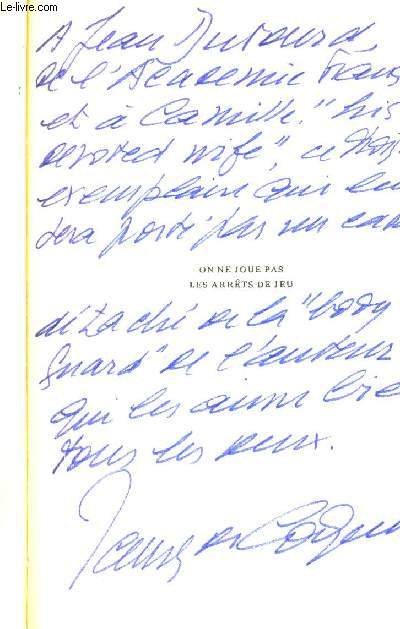 Le-livre.com
A Jean Dutourd
de l'Académie Franç
et à Camille "his
devoted wife", ce
exemplaire qui leur
sera porté par un
ON NE JOUE PAS
LES ARRÊTS DE JEU
détaché de la "body
guard" de l'auteur
qui les aime bie
tous les deux.